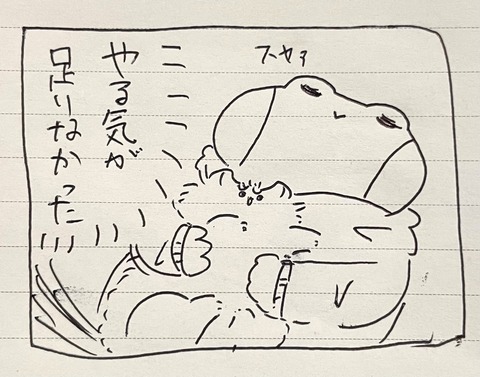 スヤァ
やる気が
足りなかった!!!